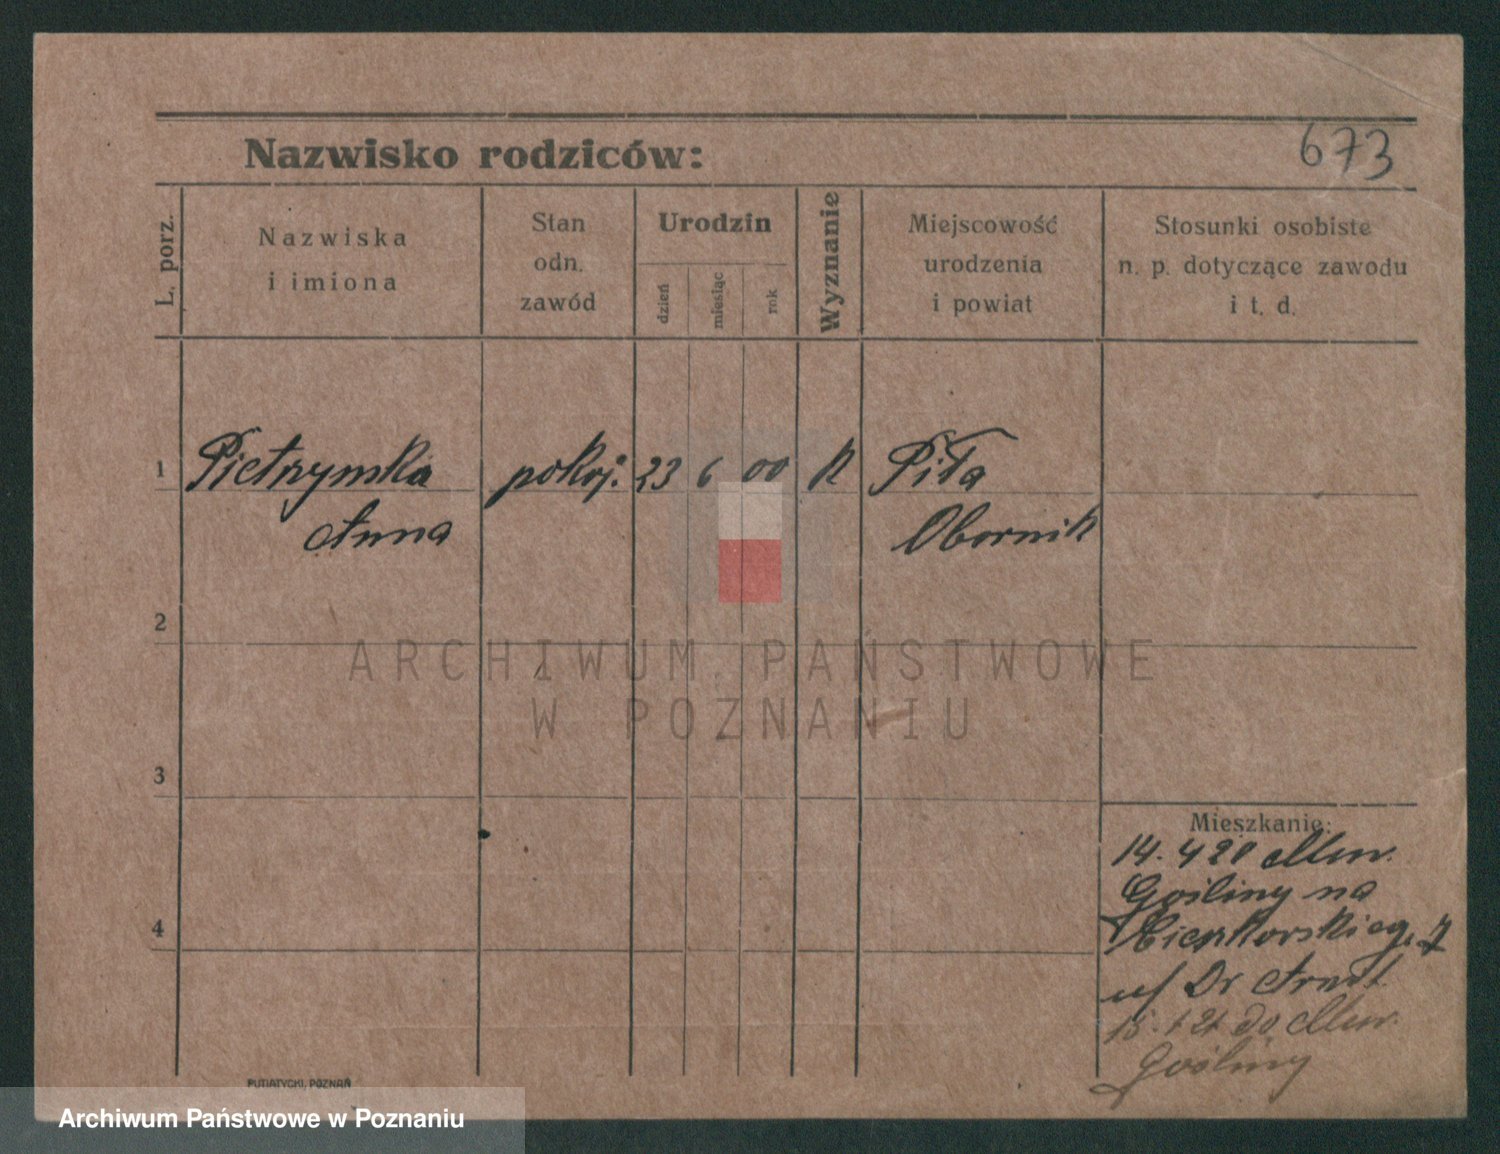 673
Nazwisko rodziców:
L. porz.
Nazwiska
i imiona
Stan
odn.
zawód
Urodzin
dzień
miesiąc
rok
Wyznanie
Miejscowość
urodzenia
i powiat
Stosunki osobiste
n. p. dotyczące zawodu
i t. d.
1 Pietrzynska pokoj. 23 6 00 K Piła
Anna Obornik
2
ARCHIWUM PAŃSTWOWE
W POZNANIU
3
Mieszkanie:
14. 4 20 Mur.
Gośliny na
4
u/ Dr Arndt.
15. 1 21 do Mur.
Gośliny
PUTIATYCKI, POZNAŃ
Archiwum Państwowe w Poznaniu